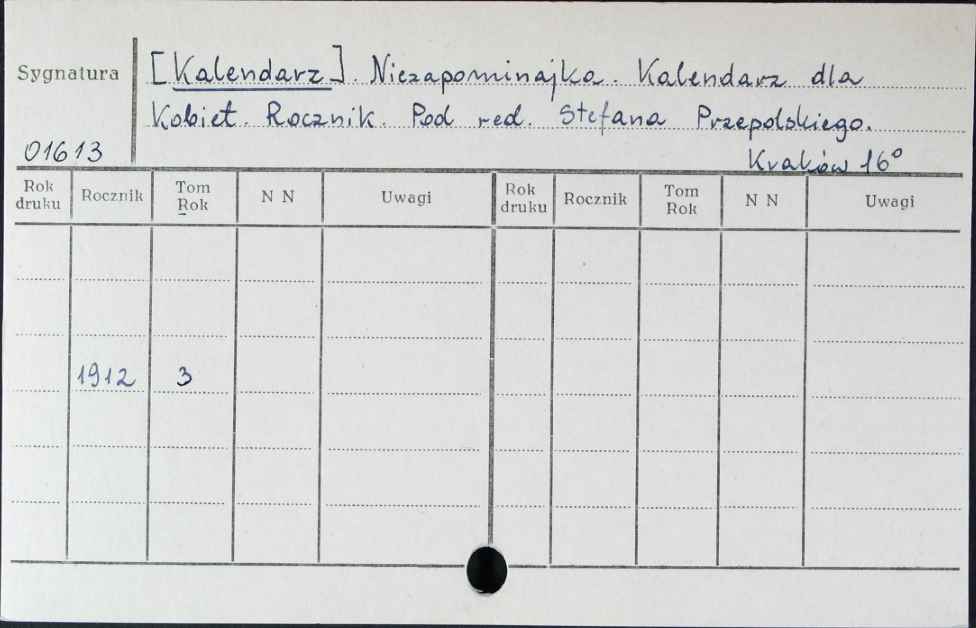 Sygnatura
[Kalendarz]. Niezapominajka. Kalendarz dla
Kobiet. Rocznik. Pod red. Stefana Przepolskiego.
01613
Kraków 16°
Rok druku Rocznik Tom Rok N N Uwagi Rok druku Rocznik Tom Rok N N Uwagi
1912 3